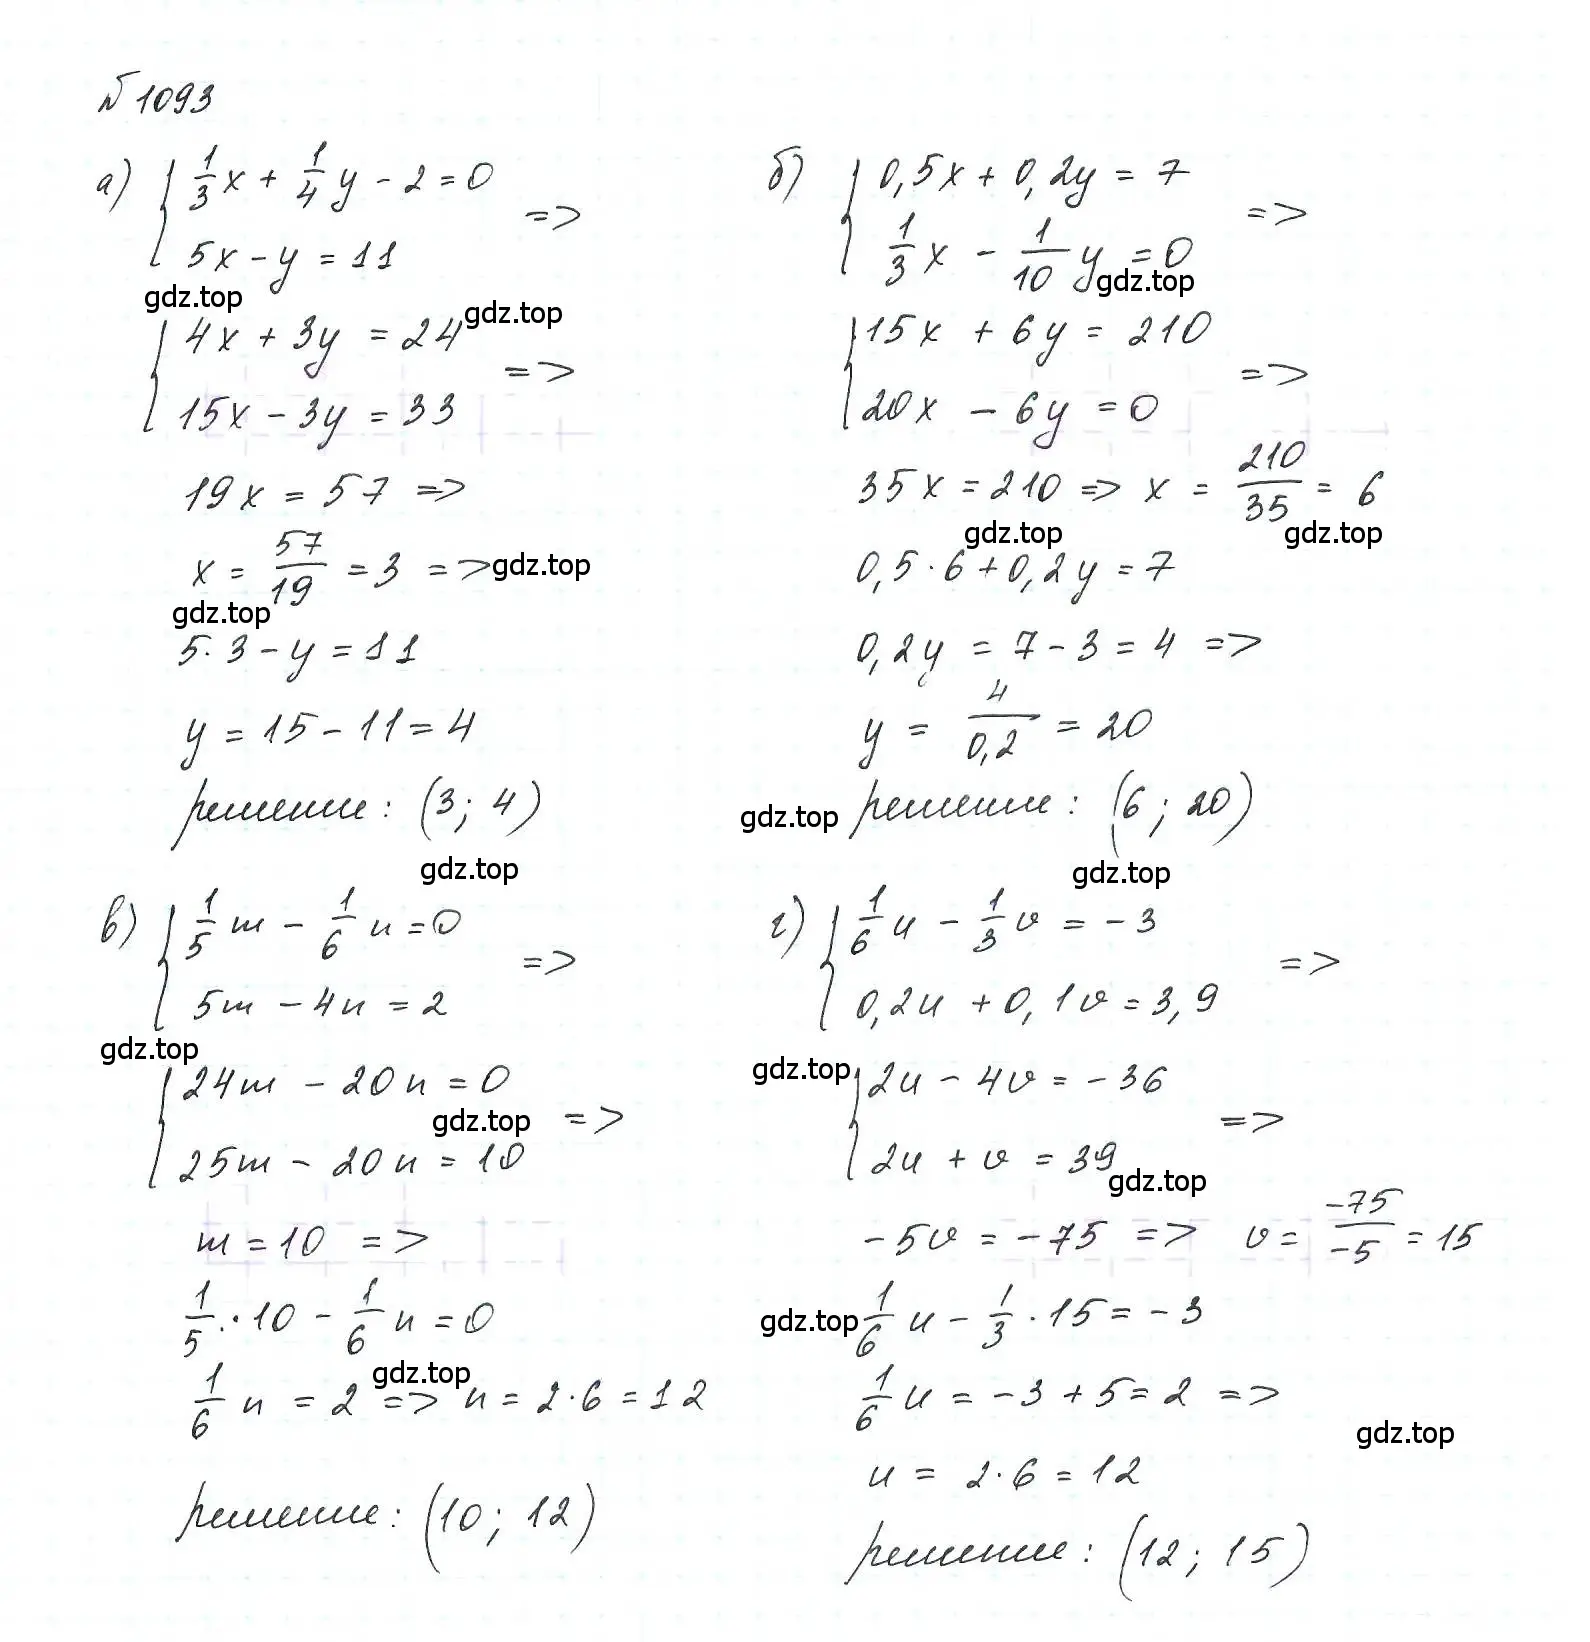 № 1093
а) { 1/3 x + 1/4 y - 2 = 0
5x - y = 11 =>
gdz.top
{ 4x + 3y = 24 gdz.top
15x - 3y = 33 =>
19x = 57 =>
x = 57/19 = 3 => gdz.top
gdz.top
5 · 3 - y = 11
y = 15 - 11 = 4
решение: (3; 4)
gdz.top
б) { 0,5x + 0,2y = 7
1/3 x - 1/10 y = 0 =>
gdz.top
{ 15x + 6y = 210
20x - 6y = 0 =>
35x = 210 => x = 210/35 = 6
gdz.top gdz.top
0,5 · 6 + 0,2y = 7
0,2y = 7 - 3 = 4 =>
y = 4/0,2 = 20
gdz.top решение: (6; 20)
gdz.top
в) { 1/5 m - 1/6 n = 0
5m - 4n = 2 =>
gdz.top
{ 24m - 20n = 0
gdz.top
25m - 20n = 10 =>
m = 10 =>
1/5 · 10 - 1/6 n = 0
gdz.top
1/6 n = 2 => n = 2 · 6 = 12
решение: (10; 12)
г) { 1/6 u - 1/3 v = - 3
0,2u + 0,1v = 3,9 =>
gdz.top
{ 2u - 4v = - 36
2u + v = 39 =>
gdz.top
- 5v = - 75 => v = -75/-5 = 15
gdz.top 1/6 u - 1/3 · 15 = - 3
1/6 u = - 3 + 5 = 2 =>
gdz.top
u = 2 · 6 = 12
решение: (12; 15)